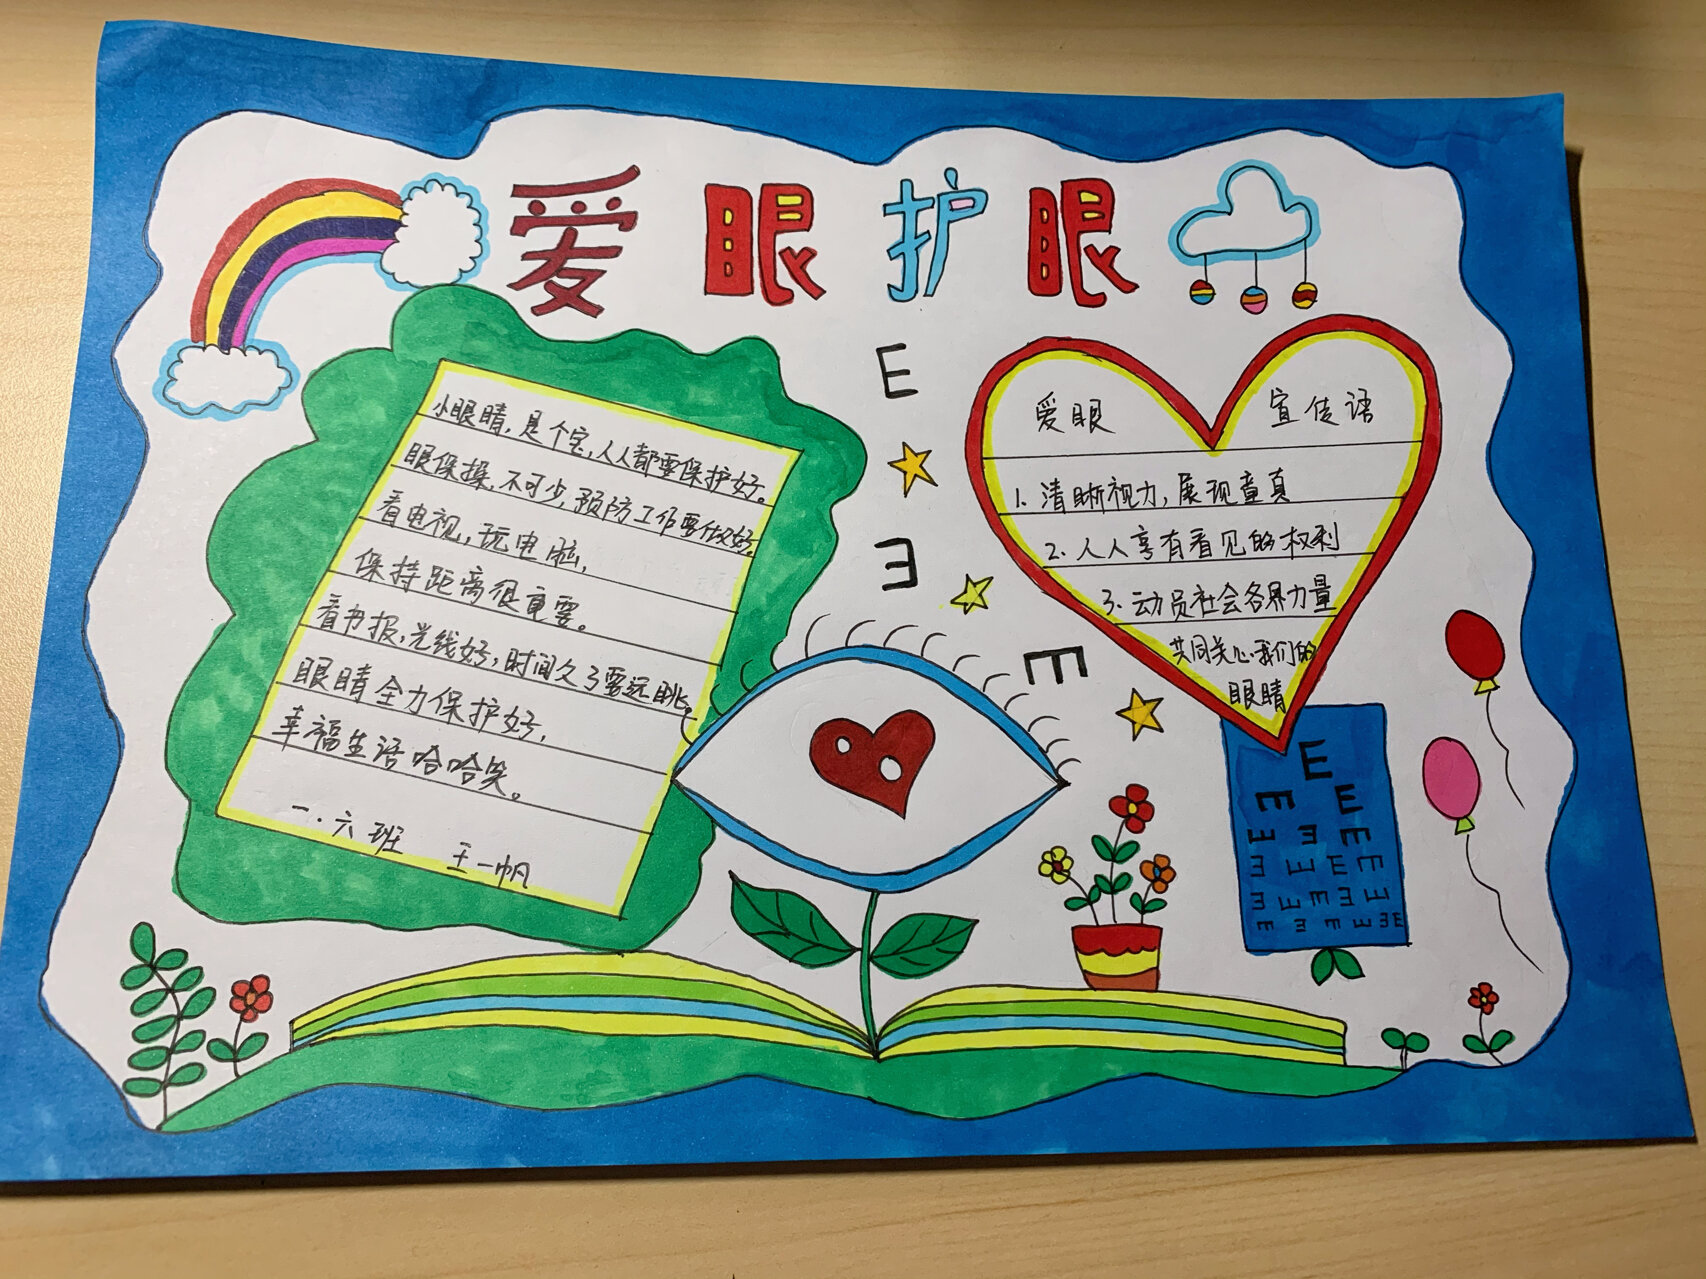 爱眼护眼
小眼睛,是个宝,人人都要保护好。
眼保操,不可少,预防工作要做好。
看电视,玩电脑,
保持距离很重要。
看书报,光线好,时间久了要远眺。
眼睛全力保护好,
幸福生活哈哈笑。
一.六班 王一帆
E
E
E
爱眼 宣传语
1. 清晰视力,展现童真
2. 人人享有看见的权利
3. 动员社会各界力量
共同关心我们的
眼睛
E
E E
E E E
E E E E
E E E E E
E E E E E E